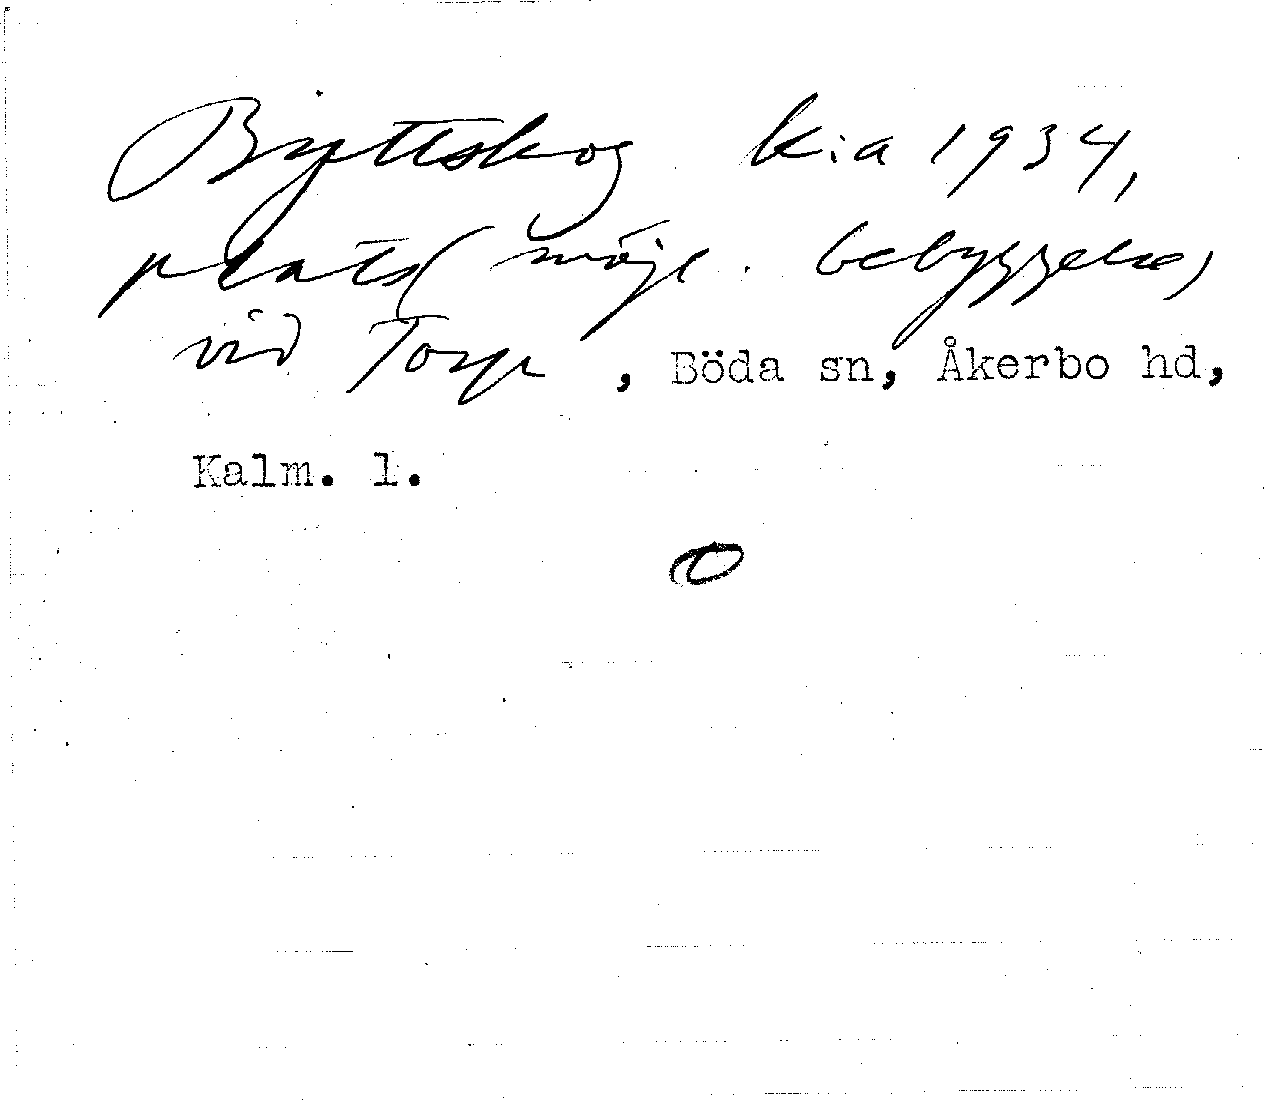 Byttskog k:a 1934,
plats (möjl. bebyggelse)
vid Torp, Böda sn, Åkerbo hd,
Kalm. l.